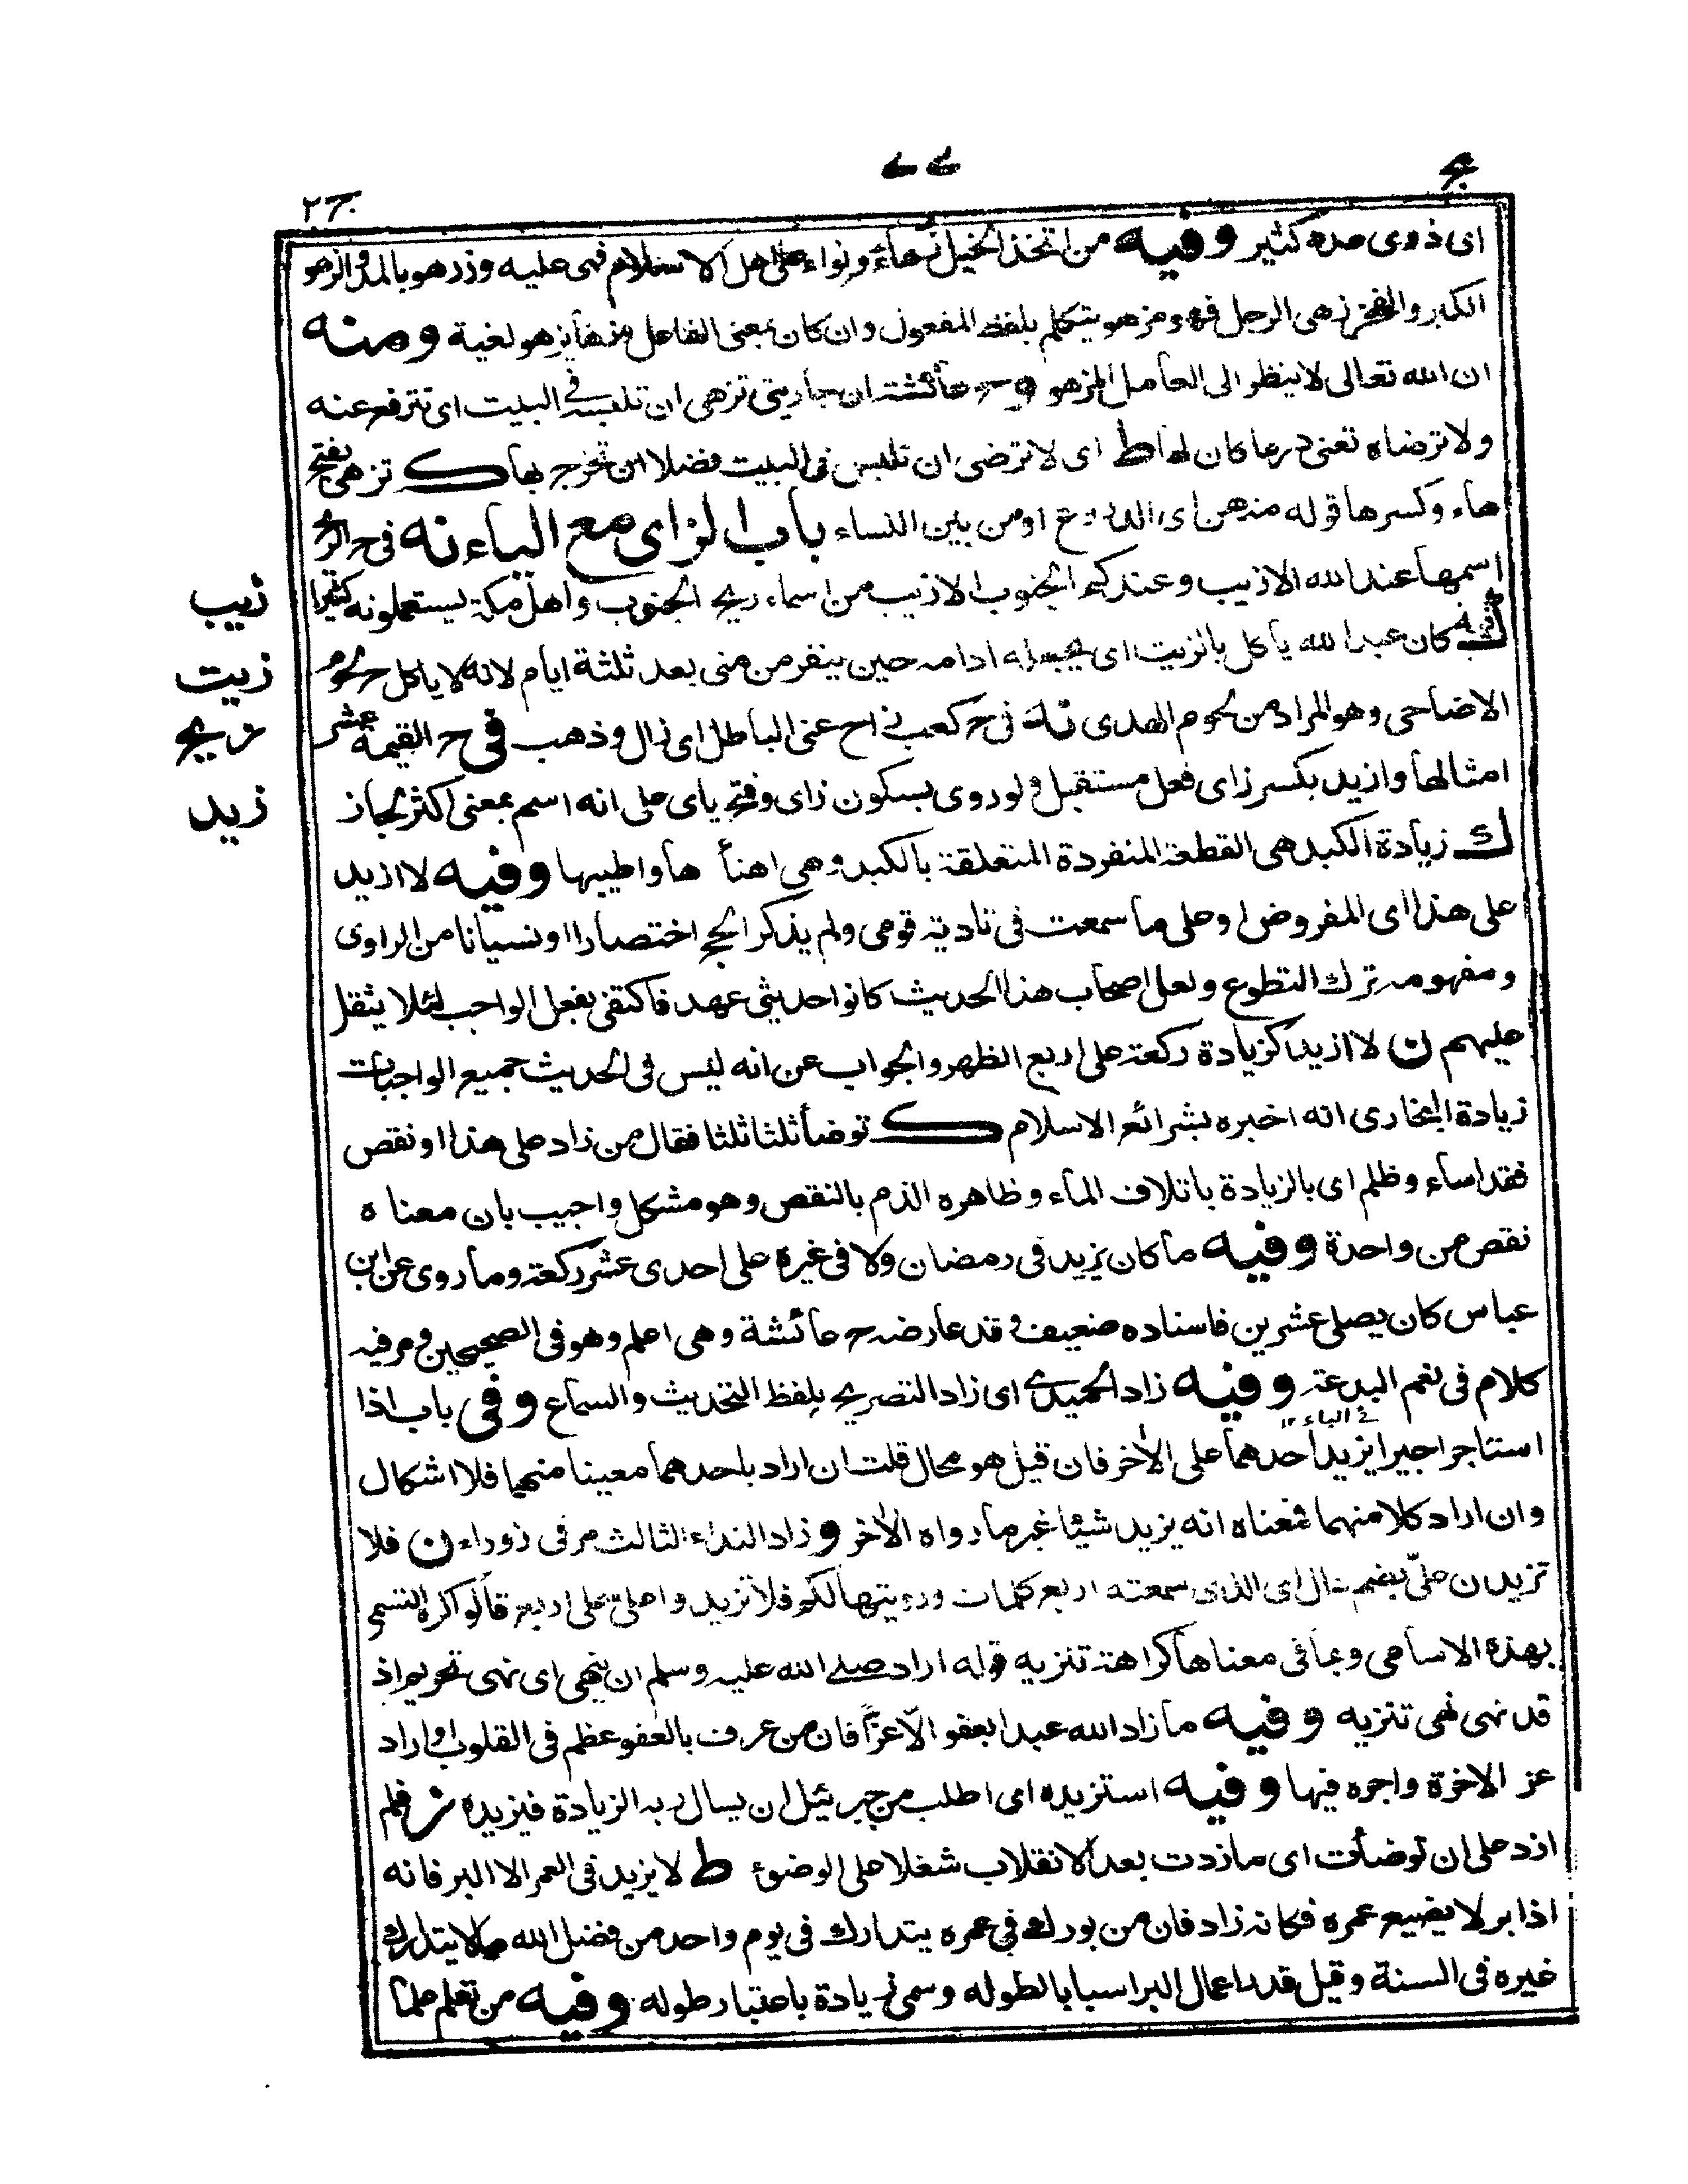 ای ذوی صدہ كثیر وفيه من اتخذ الخيل زهاء ونواء على اهل الاسلام فهی عليه وزر هو بالمد والزهو
الكبر والفخر زهی الرجل فهو مزهو يتكلم بلفظ المفعول وان كان بمعنى الفاعل وزها يزهو لغية ومنه
ان الله تعالى لا ينظر الى العامل المزهو و ح عائشة ان جاريتی تزهی ان تلبسه فی البيت ای تترفع عنه
ولا ترضاه تعنی درعا كان لها ط ای لا ترضی ان تلبس فی البيت فضلا ان تخرج بها ك تزهی بفتح
هاء وكسرها قوله منهن ای او من بين النساء باب الزای مع الياء نه فی ح الريح
اسمها عند الله الازيب وعندكم الجنوب الازيب من اسماء ريح الجنوب واهل مكة يستعملونه كثيرا
ك فيه كان عبد الله ياكل بالزيت ای يجعله ادامه حين ينفر من منى بعد ثلثة ايام لانه لا ياكل ح لحوم
الاضاحی وهو المراد من لحوم الهدی نه فی ح كعب زاح عنی الباطل ای زال وذهب فی ح القيمة عشر
امثالها وازيد بكسر زای فعل مستقبل ولو روی بسكون زای وفتح يای على انه اسم بمعنى اكثر لجاز
ك زيادة الكبد هی القطعة المنفردة المتعلقة بالكبد وهی اهنأ ها واطيبها وفيه لا ازيد
على هذا ای المفروض او على ما سمعت فی تادية قومی ولم يذكر الحج اختصارا او نسيانا من الراوی
ومفهومه ترك التطوع ولعل اصحاب هذا الحديث كانوا حديثی عهد فاكتفى بفعل الواجب لئلا يثقل
عليهم ن لا ازيد كزيادة ركعة على اربع الظهر والجواب عن انه ليس فی الحديث جميع الواجبات
زيادة البخاری انه اخبره بشرائع الاسلام ك توضأ ثلثا ثلثا فقال من زاد على هذا او نقص
فقد اساء وظلم ای بالزيادة باتلاف الماء وظاهره الذم بالنقص وهو مشكل واجيب بان معناه
نقص من واحدة وفيه ما كان يزيد فی رمضان ولا فی غيره على احدى عشر ركعة وما روی عن ابن
عباس كان يصلی عشرين فاسناده ضعيف وقد عارضه ح عائشة وهی اعلم وهو فی الصحيحين ومر فيه
كلام فی نعم البدعة وفيه زاد الحميدی ای زاد التصريح بلفظ التحديث والسماع وفی باب اذا
استاجر اجيرا يزيد احدهما على الآخر فان قيل هو محال قلت ان اراد باحدهما معينا منهما فلا اشكال
وان اراد كلا منهما فمعناه انه يزيد شيئا غير ما رواه الآخر و زاد النداء الثالث مر فی زوراء ن فلا
تزيدن علیّ بضم دال ای الذی سمعته اربع كلمات ورويتها لكم فلا تزيدوا علی علی اربعة قالوا كره التسمی
بهذه الاسامی وبما فی معناها كراهة تنزيه قوله اراد صلى الله عليه وسلم ان ينهی ای نهی تحريم اذ
قد نهی نهی تنزيه وفيه ما زاد الله عبدا بعفو الّا عزّا فان من عرف بالعفو عظم فی القلوب او اراد
عز الآخرة واجره فيها وفيه استزيده ای اطلب من جبرئيل ان يسال ربه الزيادة فيزيده ش فلم
ازد على ان توضأت ای ما زدت بعد الانقلاب شغلا على الوضوء ط لا يزيد فی العمر الا البر فانه
اذا بر لا يضيع عمره فكانه زاد فان من بورك فی عمره يتدارك فی يوم واحد من فضل الله ما لا يتدارك
غيره فی السنة وقيل قدر اعمال البر اسبابا لطوله وسمی زيادة باعتبار طوله وفيه من تعلم علما
زيب
زيت
زيح
زيد